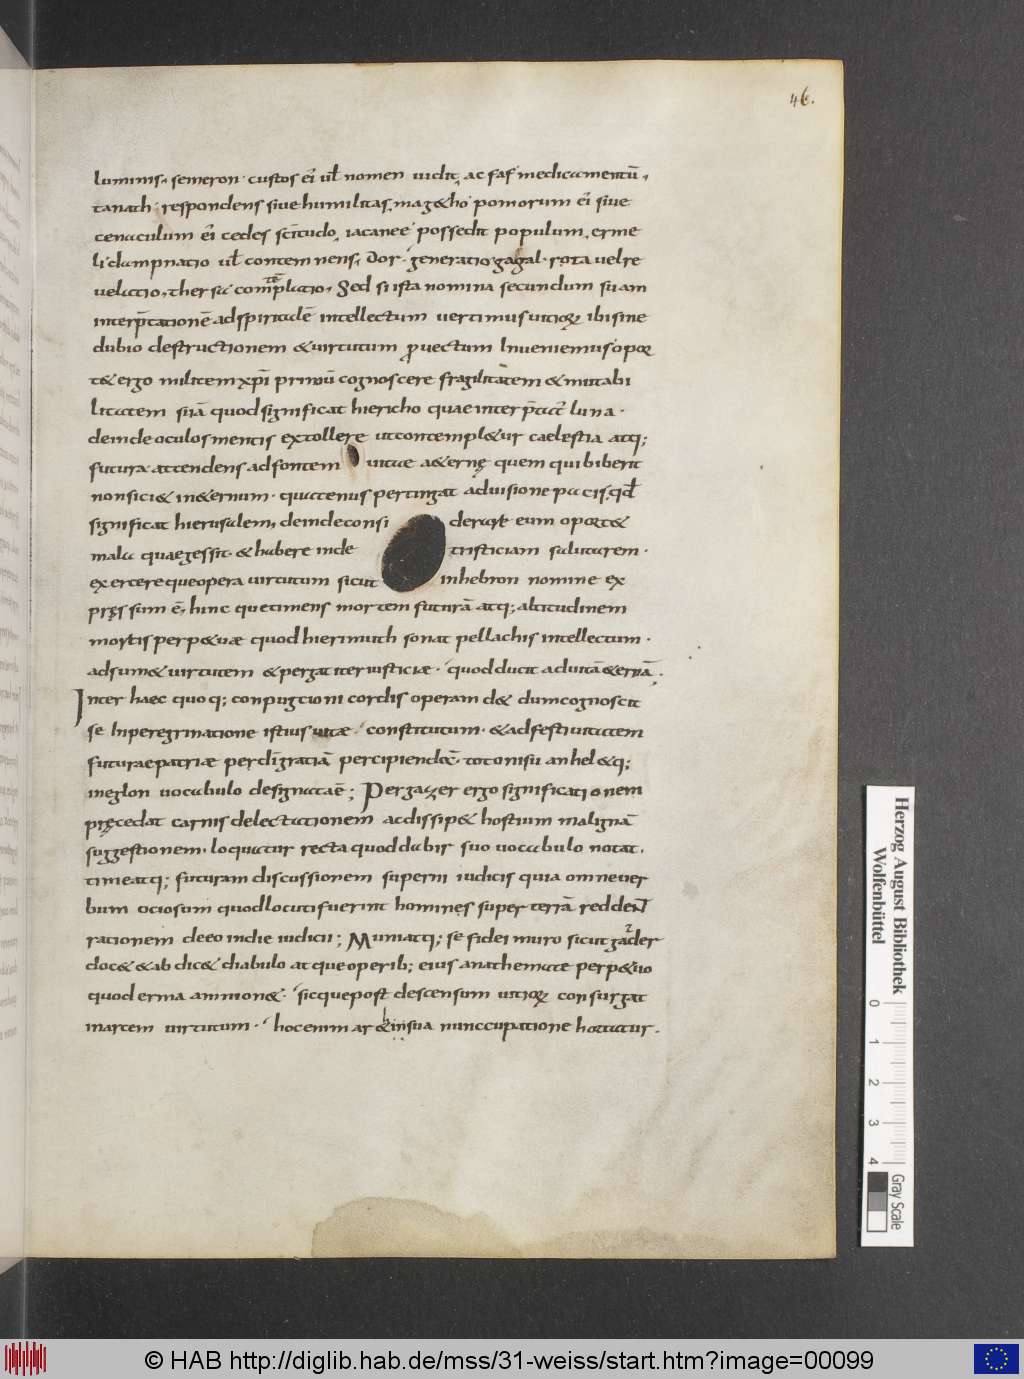 46.
luminis, semeron custos eī ūl nomen uidit, ac saf medicamentū,
tanach respondens siue humilitas, magęho pomorum eī siue
cenaculum eī cedes scītudo, iacanee possedit populum, erme
li dampnatio ūl contemnens, dor generatio gagal rota uel re
uelatio, thersa complatio, Sed si ista nomina secundum suam
interp̄tationē ad spiritalē intellectum uertimus utiqꝫ ibi sine
dubio destructionem & uirtutum ꝓuectum Inueniemus opor
t& ergo militem xp̄i primū cognoscere fragilitatem & mutabi
litatem suā quod significat hiericho quae interp̄tat̄ luna.
deinde oculos mentis extollere ut contempl&ur caelestia atq;
futura attendens ad fontem uitae a&ernę quem qui biberit
non siciet in &ernum. quatenus pertingat ad uisione pacis, qd̄
significat hierusalem, deinde consi derare eum oport&
mala quae gessit & habere inde tristiciam salutarem.
exercere que opera uirtutum sicut in hebron nomine ex
pręssum ē, hinc que timens mortem futurā atq; altitudinem
mortis perp&uae quod hierimuth sonat pellachis intellectum.
adsum& uirtutem & pergat iter iusticiae. quod ducit ad uitā &ernā.
Inter haec quoq; conpugctioni cordis operam d& dum cognoscit
se In peregrinatione istius uitae constitutum. & ad festiuitatem
futurae patriae per dī gratiā percipiendā. toto nisu anhel&q;
in eglon uocabulo designatae; Per gazer ergo significationem
pręcedat carnis delectationem ac dissip& hostium malignā
suggestionem. loquatur recta quod dabir suo uocabulo notat.
timeatq; futuram discussionem superni iudicis quia omne uer
bum ociosum quod locuti fuerint homines super terrā reddent
rationem de eo in die iudicii; Muniatq; se fidei muro sicut gader
doc& & abdic& diabulo atque operib; eius anathemate perp&uo
quod erma ammon&. sicque post descensum utiqꝫ consurgat
in arcem uirtutum. hoc enim ar& in sua nunccupatione hortatur.
Herzog August Bibliothek
Wolfenbüttel
0 1 2 3 4
Gray Scale
© HAB http://diglib.hab.de/mss/31-weiss/start.htm?image=00099